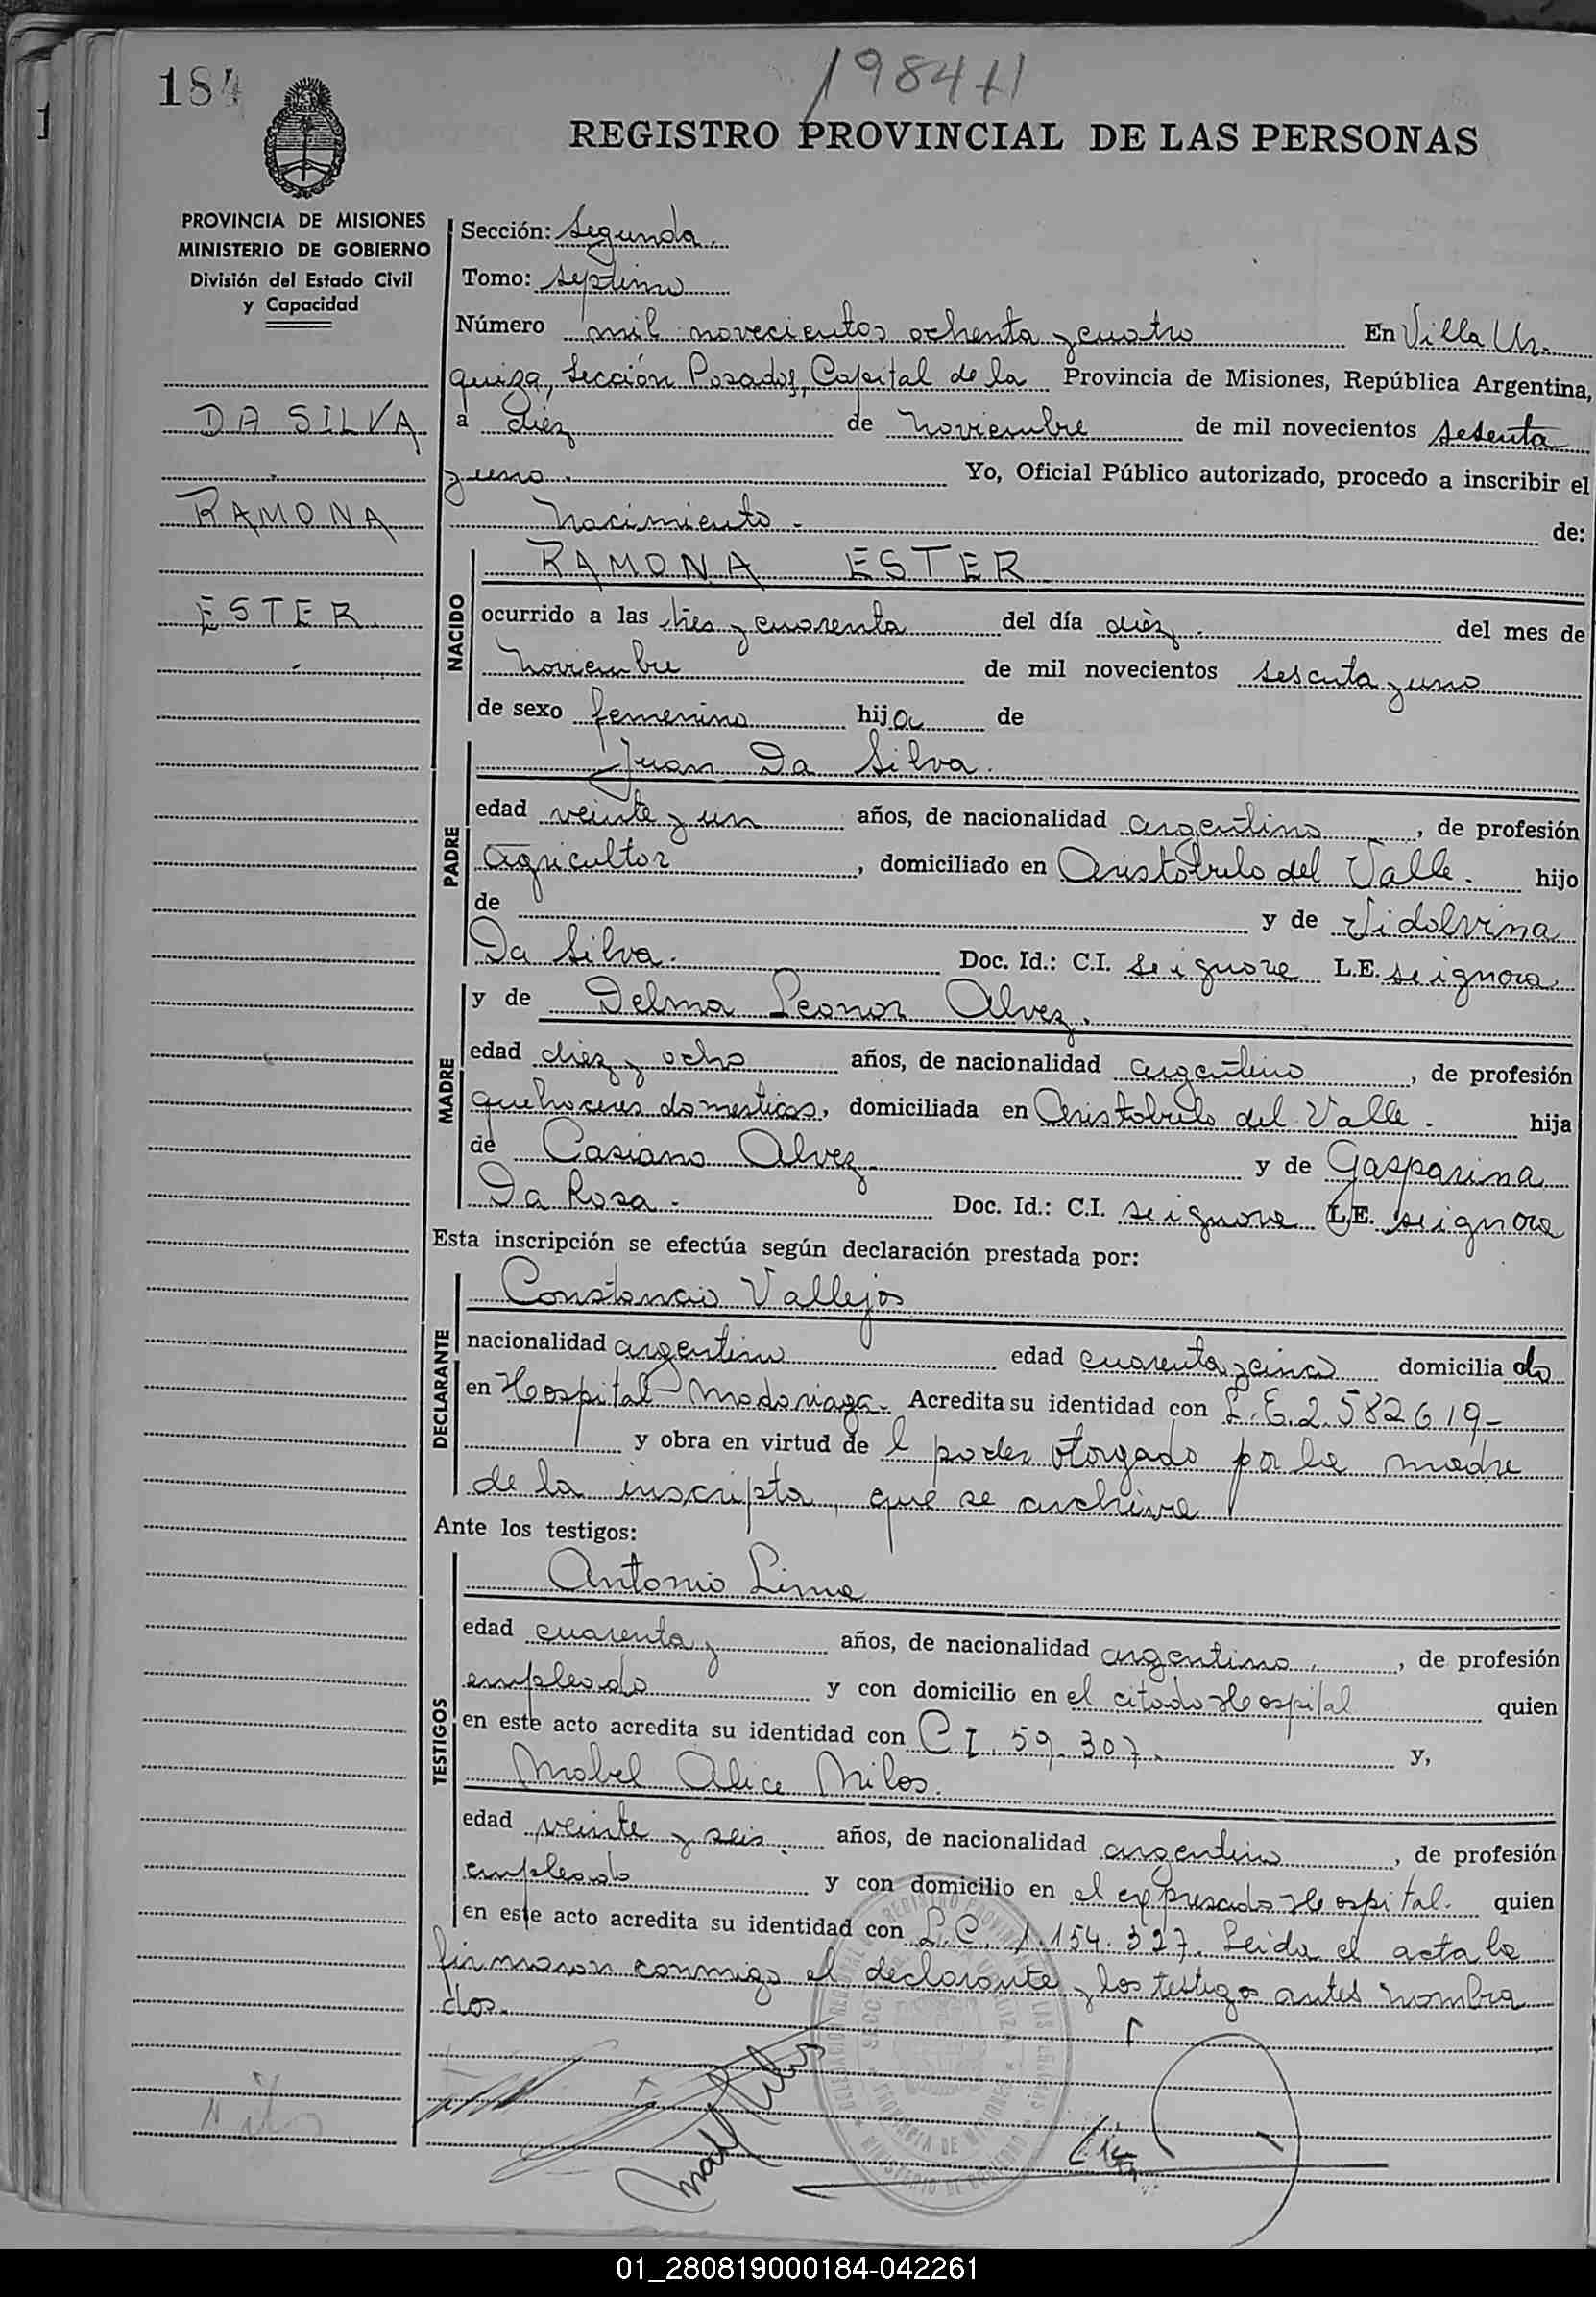 184
1984 H
REGISTRO PROVINCIAL DE LAS PERSONAS
PROVINCIA DE MISIONES
MINISTERIO DE GOBIERNO
División del Estado Civil
y Capacidad
DA SILVA
RAMONA
ESTER
Sección: Segunda
Tomo: septimo
Número mil novecientos ochenta y cuatro En Villa Ur-
quiza, Sección Posadas, Capital de la Provincia de Misiones, República Argentina,
a diéz de Noviembre de mil novecientos sesenta
y uno. Yo, Oficial Público autorizado, procedo a inscribir el
Nacimiento - de:
NACIDO
RAMONA ESTER
ocurrido a las tres y cuarenta del día diéz. del mes de
Noviembre de mil novecientos sesenta y uno
de sexo femenino hija de
PADRE
Juan Da Silva.
edad veinte y un años, de nacionalidad argentino, de profesión
agricultor, domiciliado en Aristóbulo del Valle. hijo
de y de Vidolvina
Da Silva. Doc. Id.: C.I. se ignora L.E. se ignora
MADRE
y de Delma Leonor Alvez.
edad diez y ocho años, de nacionalidad argentino, de profesión
quehaceres domesticos, domiciliada en Aristobulo del Valle. hija
de Casiano Alvez y de Gasparina
Da Rosa. Doc. Id.: C.I. se ignora L.E. se ignora
Esta inscripción se efectúa según declaración prestada por:
DECLARANTE
Constancio Vallejos
nacionalidad argentino edad cuarenta y cinco domiciliado
en Hospital Madariaga. Acredita su identidad con L.E. 2.582.619-
y obra en virtud del poder otorgado por la madre
de la inscripta, que se archiva
Ante los testigos:
TESTIGOS
Antonio Lima
edad cuarenta y años, de nacionalidad argentino, de profesión
empleado y con domicilio en el citado Hospital quien
en este acto acredita su identidad con C I. 59.307. y,
Mabel Alice Milos.
edad veinte y seis años, de nacionalidad argentino, de profesión
empleado y con domicilio en el expresado Hospital. quien
en este acto acredita su identidad con L.C. 1.154.327. Leida el acta la
firmaron conmigo el declarante y los testigos antes nombra
dos.
01_280819000184-042261